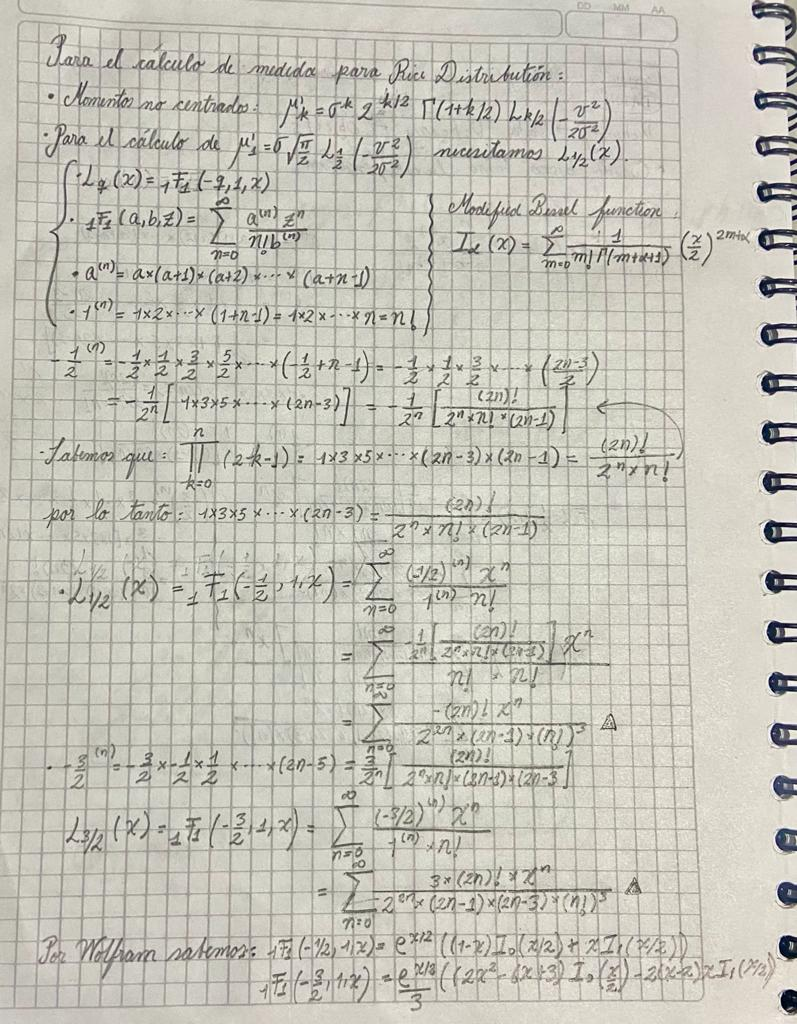 DD MM AA
Para el cálculo de medida para Rice Distribution:
• Momentos no centrados: μ'k = σ^k 2^(k/2) Γ(1+k/2) L_{k/2}(-v²/2σ²)
• Para el cálculo de μ'1 = σ√(π/2) L_{1/2}(-v²/2σ²) necesitamos L_{1/2}(x).
• L_q(x) = ₁F₁(-q,1,x)
• ₁F₁(a,b,z) = Σ_{n=0}^{∞} a^(n) z^n / n! b^(n)
• a^(n) = a×(a+1)×(a+2)×⋯×(a+n-1)
• 1^(n) = 1×2×⋯×(1+n-1) = 1×2×⋯×n = n!
Modified Bessel function:
I_α(x) = Σ_{m=0}^{∞} 1/(m! Γ(m+α+1)) (x/2)^{2m+α}
-1/2^(n) = -1/2 × 1/2 × 3/2 × 5/2 × ⋯ × (-1/2+n-1) = -1/2 × 1/2 × 3/2 × ⋯ × ((2n-3)/2)
= -1/2^n [1×3×5×⋯×(2n-3)] = -1/2^n [(2n)!/(2^n×n!×(2n-1))]
- Sabemos que: ∏_{k=0}^{n} (2k-1) = 1×3×5×⋯×(2n-3)×(2n-1) = (2n)!/(2^n×n!)
por lo tanto: 1×3×5×⋯×(2n-3) = (2n)!/(2^n×n!×(2n-1))
• L_{1/2}(x) = ₁F₁(-1/2,1,x) = Σ_{n=0}^{∞} (-1/2)^(n) x^n / 1^(n) n!
= Σ_{n=0}^{∞} -1/2^n [(2n)!/(2^n×n!×(2n-1))] x^n / n! × n!
= Σ_{n=0}^{∞} -(2n)! x^n / 2^{2n}×(2n-1)×(n!)³ △
• -3/2^(n) = -3/2 × -1/2 × 1/2 × ⋯ × (2n-5) = 3/2^n [(2n)!/(2^n×n!×(2n-1)×(2n-3)]
L_{3/2}(x) = ₁F₁(-3/2,1,x) = Σ_{n=0}^{∞} (-3/2)^(n) x^n / 1^(n)×n!
= Σ_{n=0}^{∞} 3×(2n)!×x^n / 2^{2n}×(2n-1)×(2n-3)×(n!)³ △
Por Wolfram sabemos: ₁F₁(-1/2,1,x) = e^{x/2}((1-x)I₀(x/2)+xI₁(x/2))
₁F₁(-3/2,1,x) = e^{x/2}/3 ((2x²-6x+3)I₀(x/2)-2(x-2)xI₁(x/2)